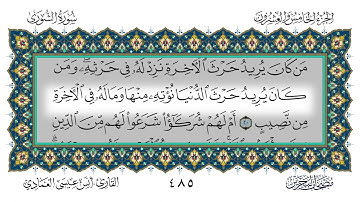 الجزء الخامس والعشرون
سورة الشورى
مَن كَانَ يُرِيدُ حَرْثَ الْآخِرَةِ نَزِدْ لَهُ فِي حَرْثِهِ ۖ وَمَن
كَانَ يُرِيدُ حَرْثَ الدُّنْيَا نُؤْتِهِ مِنْهَا وَمَا لَهُ فِي الْآخِرَةِ
مِن نَّصِيبٍ ٢٠ أَمْ لَهُمْ شُرَكَاؤُا شَرَعُوا لَهُم مِّنَ الدِّينِ
٤٨٥
القارئ: أنس عيسى العمادي